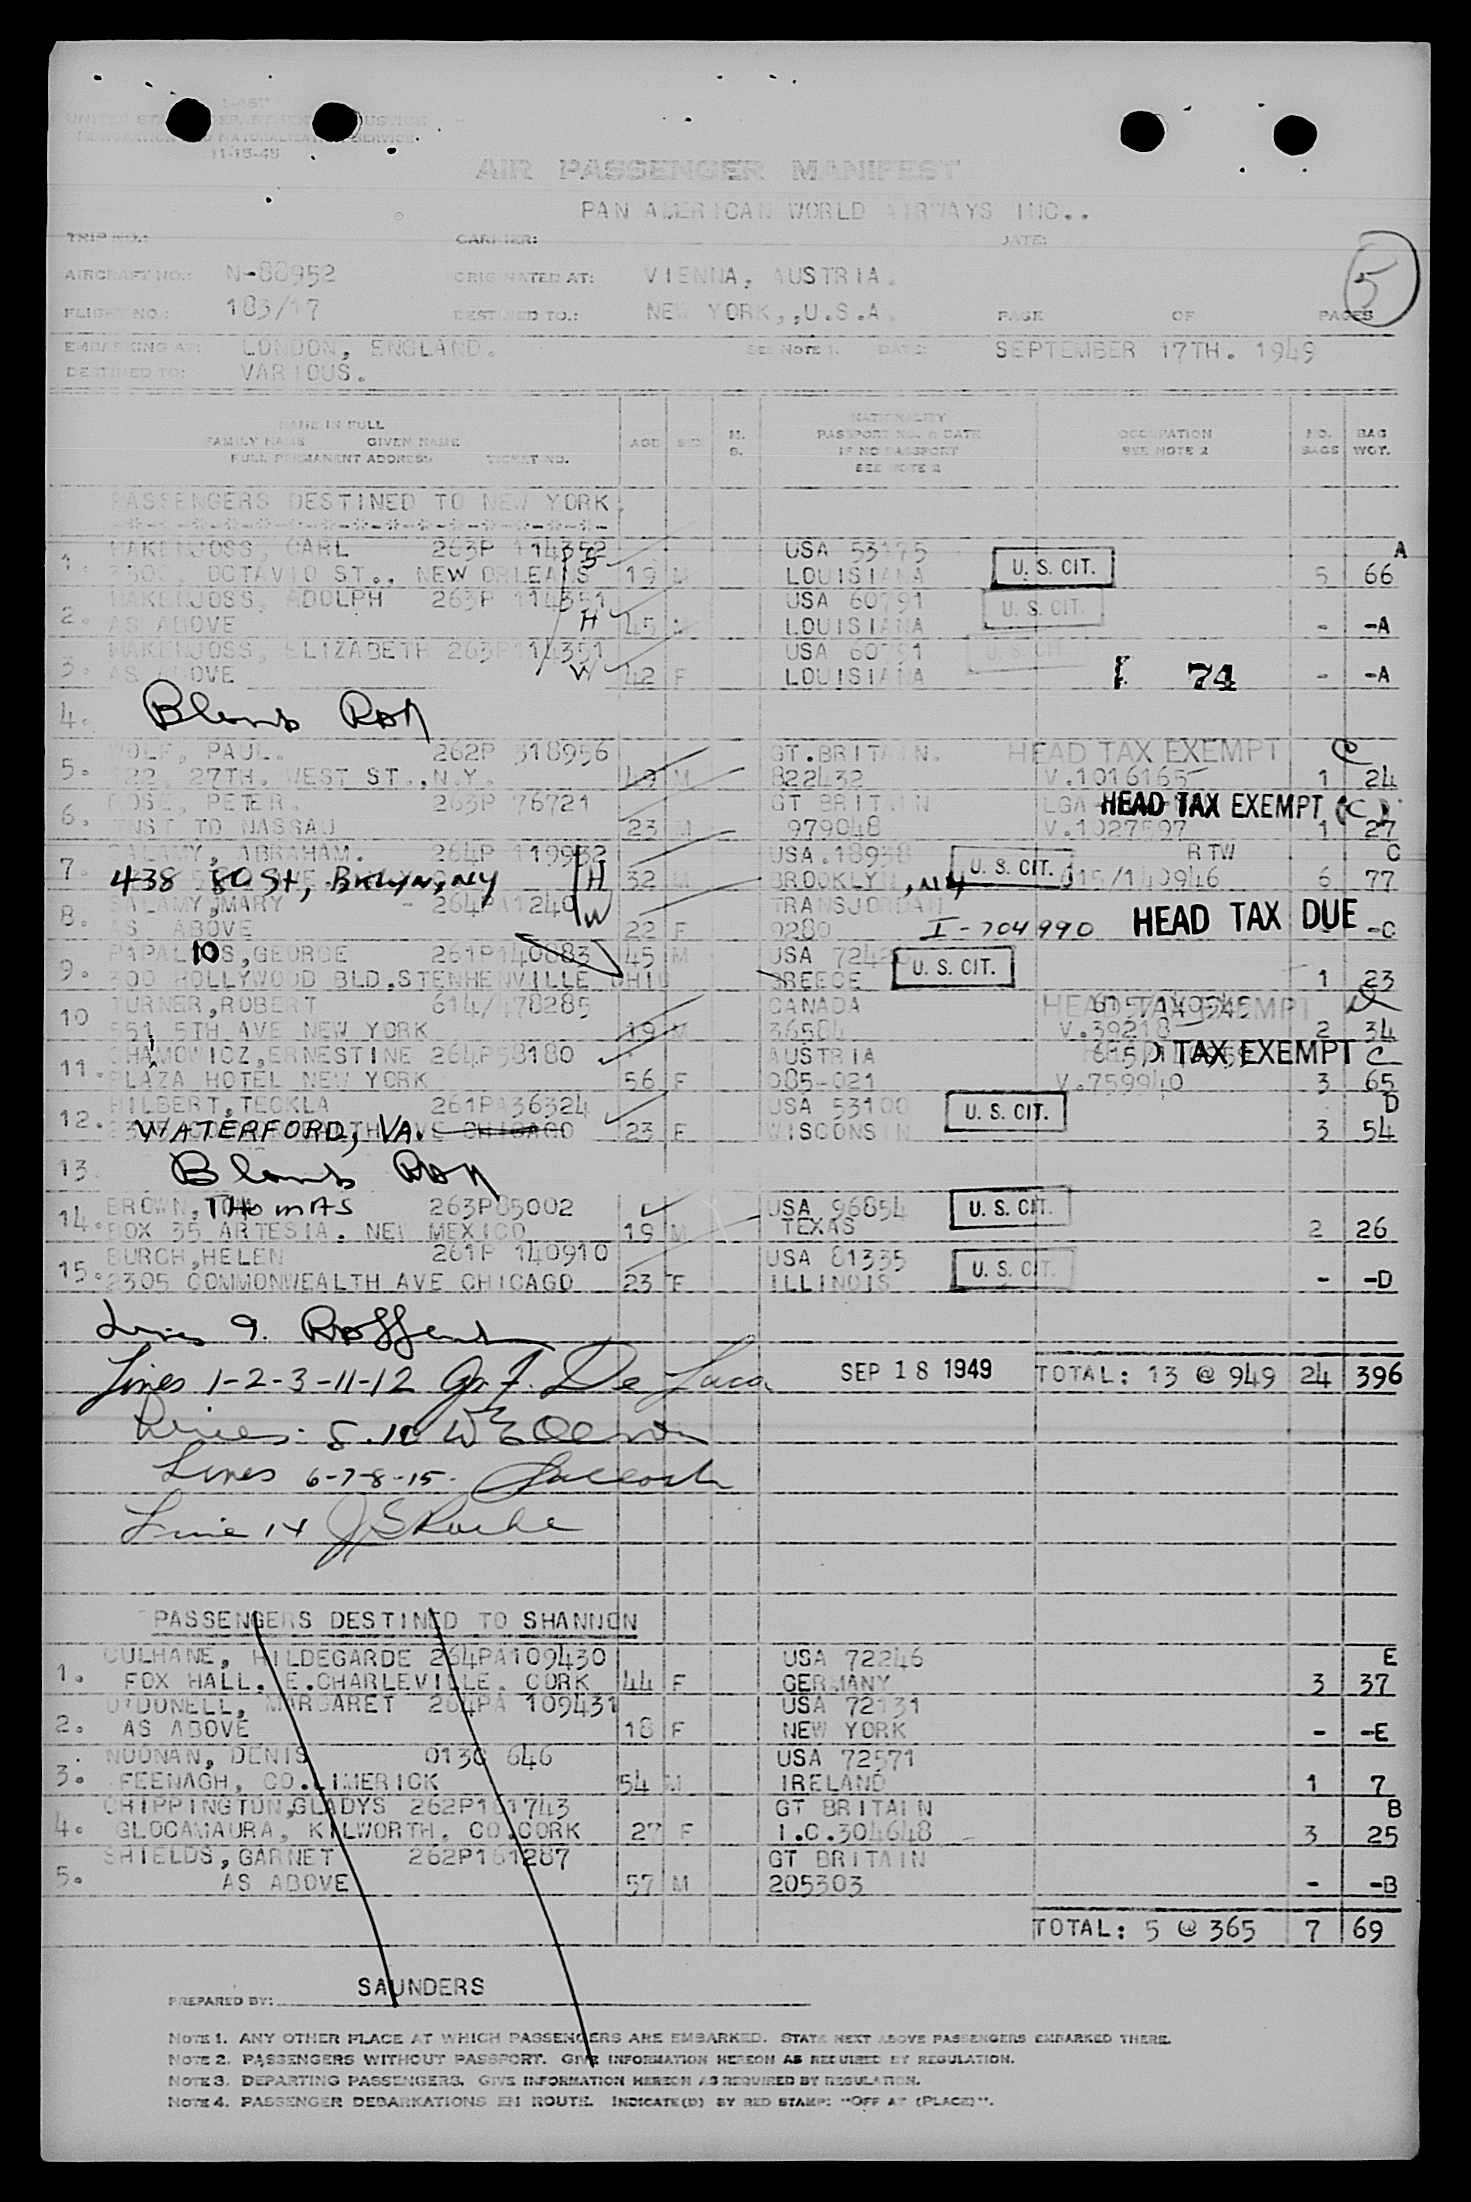 I-457
UNITED STATES DEPARTMENT OF JUSTICE
IMMIGRATION AND NATURALIZATION SERVICE
11-15-48
AIR PASSENGER MANIFEST
PAN AMERICAN WORLD AIRWAYS INC..
TRIP NO.: CARRIER: DATE:
AIRCRAFT NO.: N-88952 ORIGINATED AT: VIENNA, AUSTRIA. 5
FLIGHT NO.: 183/17 DESTINED TO.: NEW YORK,,U.S.A. PAGE OF PAGES
EMBARKING AT: LONDON, ENGLAND. SEE NOTE 1. DATE: SEPTEMBER 17TH. 1949
DESTINED TO: VARIOUS.
NAME IN FULL NATIONALITY
FAMILY NAME GIVEN NAME AGE SEX M. PASSPORT NO. & DATE OCCUPATION NO. BAG
FULL PERMANENT ADDRESS TICKET NO. S. IF NO PASSPORT SEE NOTE 2 BAGS WGT.
SEE NOTE 2
PASSENGERS DESTINED TO NEW YORK.
1. HAKENJOSS, CARL 263P 114352 S USA 53175 A
OCTAVIO ST., NEW ORLEANS 19 M LOUISIANA U. S. CIT. 5 66
2. HAKENJOSS, ADOLPH 263P 114351 USA 60791 U. S. CIT.
AS ABOVE H 45 M LOUISIANA - -A
3. HAKENJOSS, ELIZABETH 263P114351 USA 60791 U. S. CIT.
AS ABOVE W 42 F LOUISIANA 74 - -A
4. Blank
5. WOLF, PAUL. 262P 318956 GT.BRITAIN. HEAD TAX EXEMPT C
122, 27TH. WEST ST.,N.Y. 49 M 822432 V.1016165 1 24
6. ROSE, PETER. 263P 76721 GT BRITAIN LGA HEAD TAX EXEMPT (C)
TNST TO NASSAU 23 M 979048 V.1027597 1 27
7. SALAMY, ABRAHAM. 264P 119932 USA.18938 RTW C
438 80 St, BKLYN, NY H 32 M BROOKLYN, NY U. S. CIT. 615/140946 6 77
8. SALAMY,MARY - 264PA1240 W TRANSJORDAN
AS ABOVE 22 F 9280 I-704990 HEAD TAX DUE -C
9. PAPALIOS,GEORGE 261P140883 45 M USA 7242 U. S. CIT.
300 HOLLYWOOD BLD.STENHENVILLE OHIO GREECE 1 23
10 TURNER,ROBERT 614/478285 CANADA HEAD TAX EXEMPT
551 5TH AVE NEW YORK 19 M 36584 V.39218 2 34
11. CHAIMOWICZ,ERNESTINE 264P58180 AUSTRIA TAX EXEMPT C
PLAZA HOTEL NEW YORK 56 F 085-021 V.759940 3 65
12. HILBERT,TECKLA 261PA36324 USA 53100 U. S. CIT. D
WATERFORD, VA. CHICAGO 23 F WISCONSIN 3 54
13. Blank
14. BROWN, THOMAS 263P85002 USA 96854 U. S. CIT.
BOX 35 ARTESIA. NEW MEXICO 19 M TEXAS 2 26
15. BURCH,HELEN 261P 140910 USA 81335 U. S. CIT.
2305 COMMONWEALTH AVE CHICAGO 23 F ILLINOIS - -D
Lines 9.
Lines 1-2-3-11-12 SEP 18 1949 TOTAL: 13 @ 949 24 396
Lines: 5.10
Lines 6-7-8-15-
Line 14
PASSENGERS DESTINED TO SHANNON
1. CULHANE, HILDEGARDE 264PA109430 USA 72246 E
FOX HALL. E.CHARLEVILLE. CORK 44 F GERMANY 3 37
2. O'DONELL, MARGARET 264PA 109431 USA 72131
AS ABOVE 18 F NEW YORK - -E
3. NOONAN, DENIS 0130 646 USA 72571
FEENAGH, CO.LIMERICK 54 M IRELAND 1 7
4. CHIPPINGTON,GLADYS 262P161743 GT BRITAIN B
GLOCAMAURA, KILWORTH. CO.CORK 27 F I.O.304648 3 25
5. SHIELDS,GARNET 262P161287 GT BRITAIN
AS ABOVE 57 M 205303 - -B
TOTAL: 5 @ 365 7 69
PREPARED BY: SAUNDERS
NOTE 1. ANY OTHER PLACE AT WHICH PASSENGERS ARE EMBARKED. STATE NEXT ABOVE PASSENGERS EMBARKED THERE.
NOTE 2. PASSENGERS WITHOUT PASSPORT. GIVE INFORMATION HEREON AS REQUIRED BY REGULATION.
NOTE 3. DEPARTING PASSENGERS. GIVE INFORMATION HEREON AS REQUIRED BY REGULATION.
NOTE 4. PASSENGER DEBARKATIONS EN ROUTE. INDICATE(D) BY RED STAMP: "OFF AT (PLACE)".